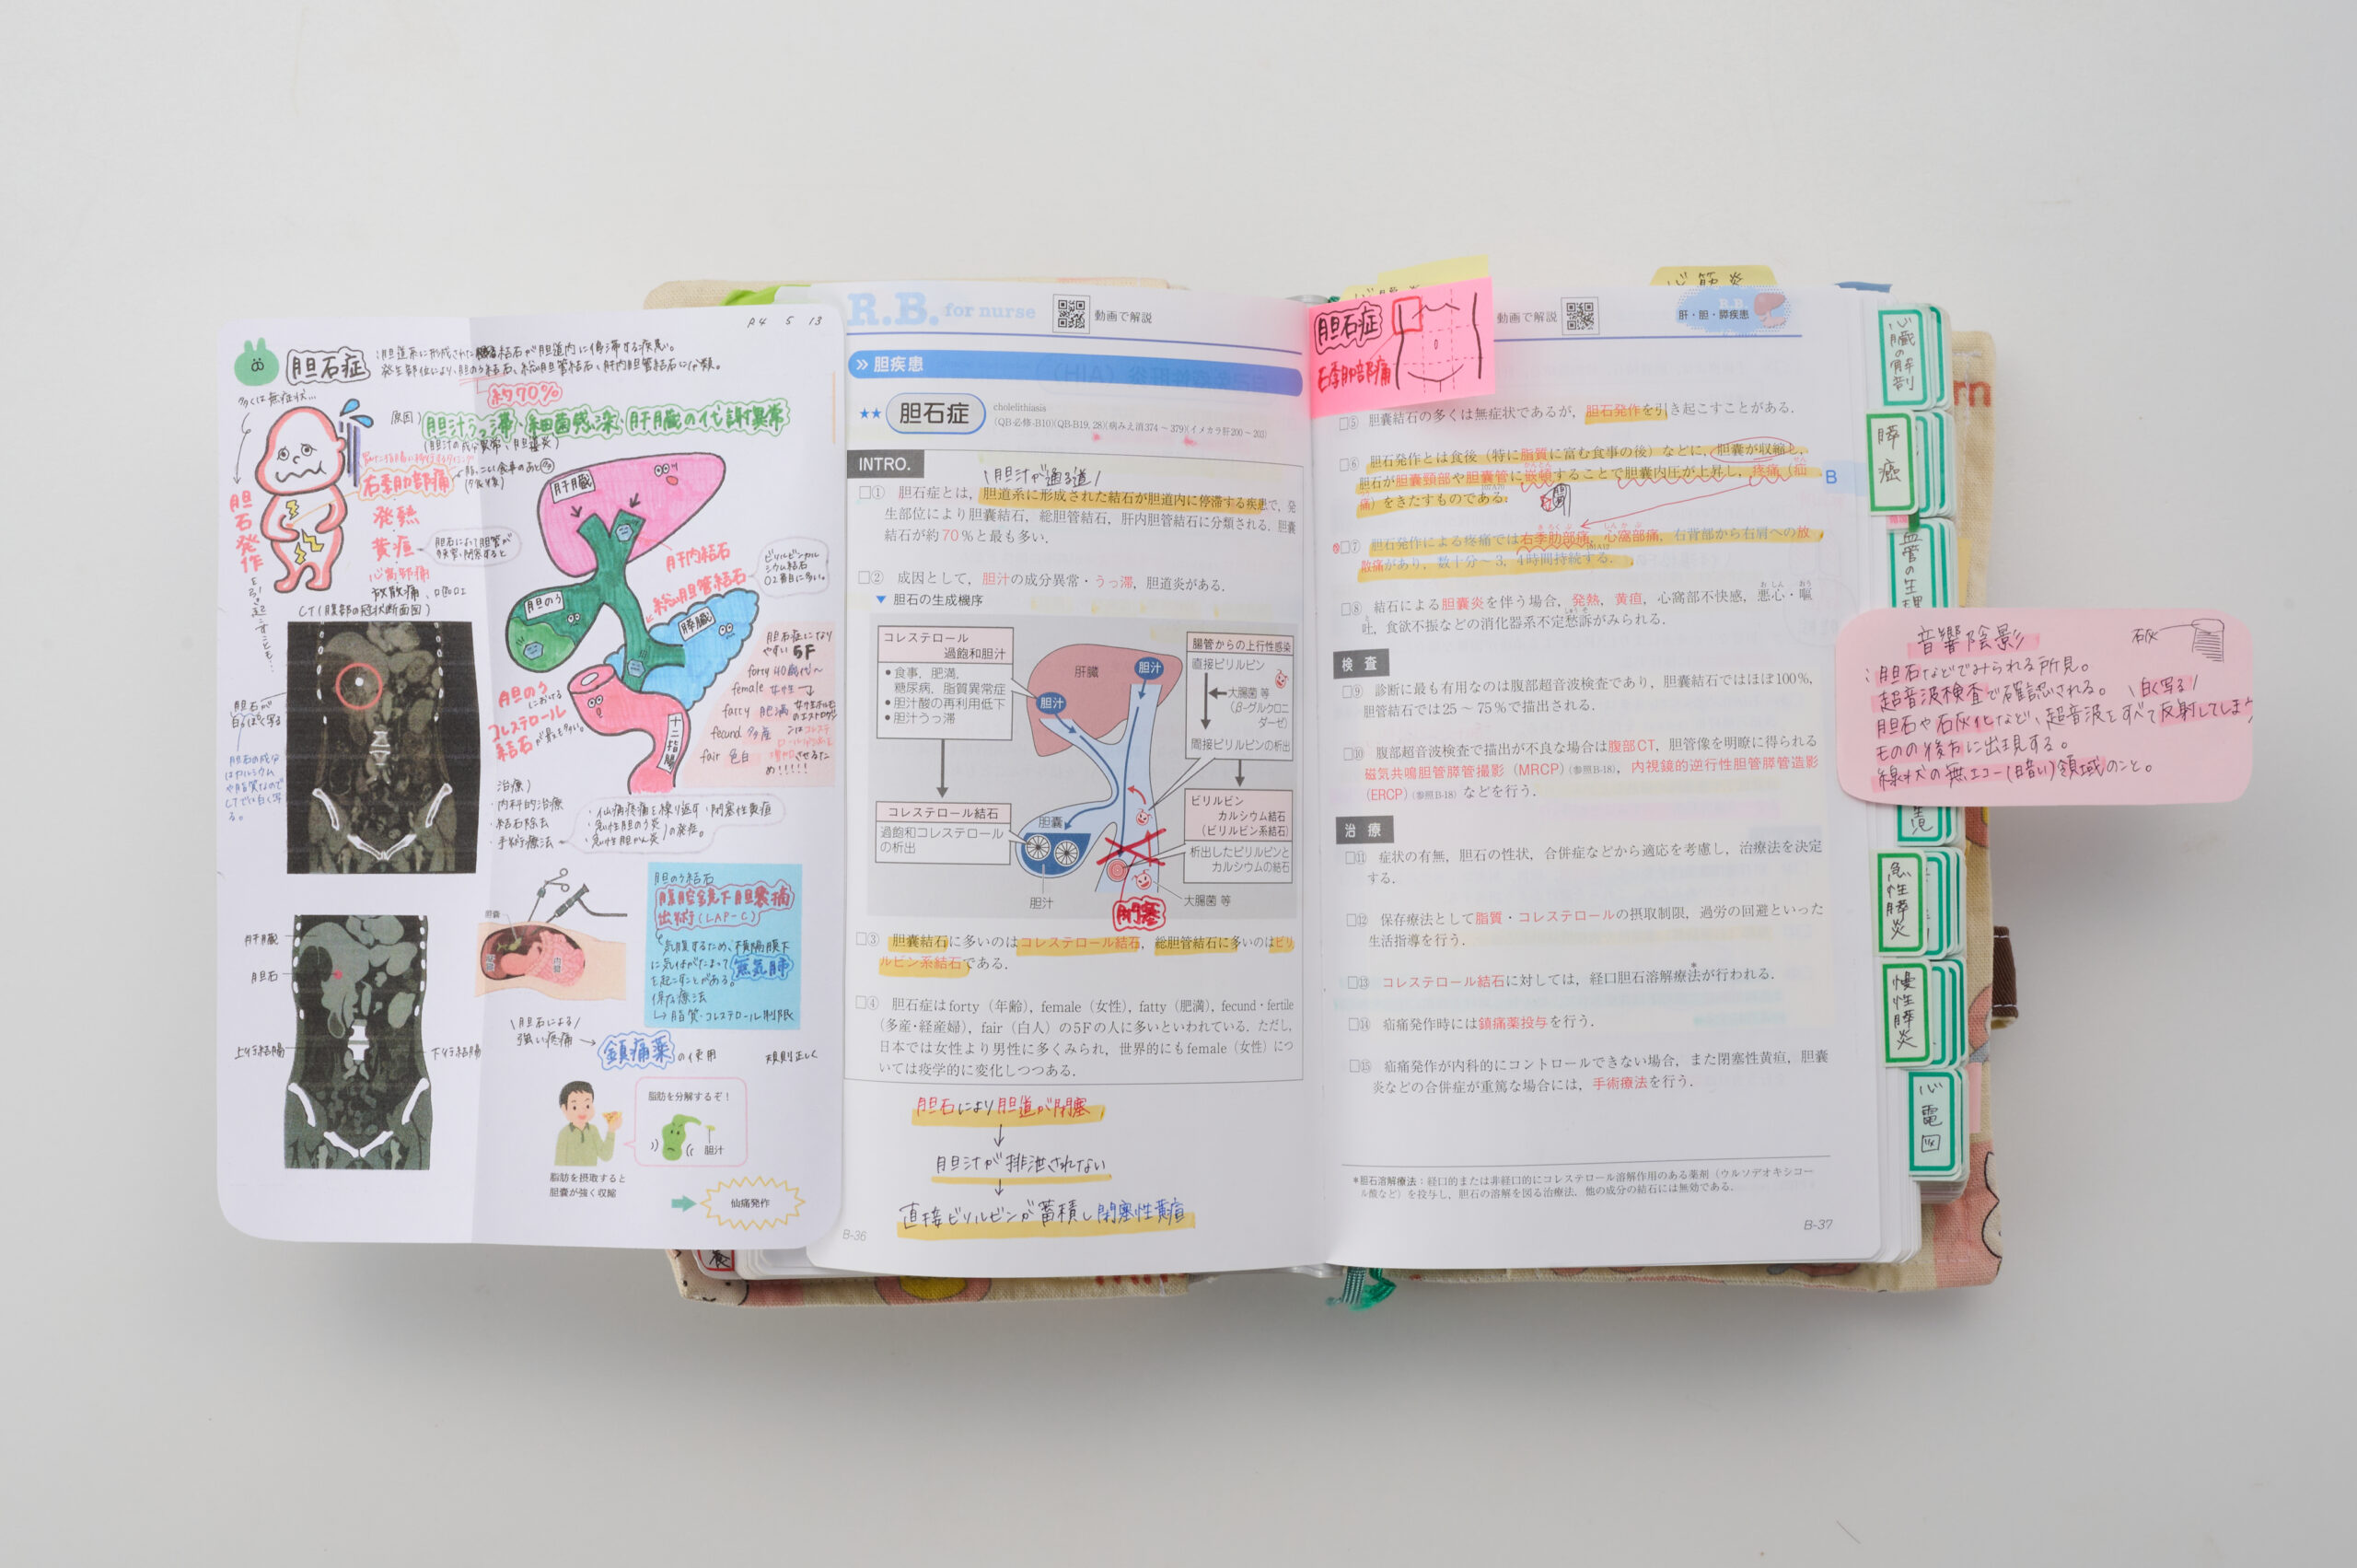 A4 5 13
胆石症
:胆道系に形成された結石が胆道内に停滞する疾患。
発生部位により、胆のう結石、総胆管結石、肝内胆管結石に分類。
約70%
多くは無症状…
原因)
胆汁うっ滞、細菌感染、肝臓の代謝異常
右季肋部痛
発熱
黄疸
心窩部痛
放散痛、
胆石発作
を引き起こすことも…
CT(腹部の冠状断面図)
胆石が
白っぽく写る
肝臓
胆のう
膵臓
十二指腸
肝内結石
総胆管結石
ビリルビンカル
シウム結石
胆のう
における
コレステロール
結石が最も多い。
胆石症になり
やすい5F
forty 40歳代~
female 女性
fatty 肥満
fecund 多産
fair 色白
治療)
・内科的治療
・結石除去
・手術療法
・仙痛疼痛を繰り返す・閉塞性黄疸
・急性胆のう炎
・急性胆かん炎 の発症。
胆のう結石
腹腔鏡下胆嚢摘
出術(LAP-C)
気腹するため、横隔膜下
に気体がたまって無気肺
を起こすことがある。
保存療法
↳脂質・コレステロール制限
肝臓
胆石
上行結腸
下行結腸
胆嚢
\胆石による/
強い疼痛 → 鎮痛薬の使用
規則正しく
脂肪を分解するぞ!
胆汁
脂肪を摂取すると
胆嚢が強く収縮
仙痛発作
R.B. for nurse
動画で解説
胆疾患
★★ 胆石症
cholelithiasis
(QB必修-B10)(QB-B19, 28)(病みえ消374~379)(イメカラ肝200~203)
INTRO.
\胆汁が通る道/
□① 胆石症とは,胆道系に形成された結石が胆道内に停滞する疾患で,発
生部位により胆嚢結石,総胆管結石,肝内胆管結石に分類される.胆嚢
結石が約70%と最も多い.
□② 成因として,胆汁の成分異常・うっ滞,胆道炎がある.
▼ 胆石の生成機序
コレステロール
過飽和胆汁
●食事,肥満,
糖尿病,脂質異常症
●胆汁酸の再利用低下
●胆汁うっ滞
肝臓
胆汁
胆汁
腸管からの上行性感染
直接ビリルビン
大腸菌 等
(β-グルクロニ
ダーゼ)
間接ビリルビンの析出
コレステロール結石
過飽和コレステロール
の析出
胆嚢
胆汁
ビリルビン
カルシウム結石
(ビリルビン系結石)
析出したビリルビンと
カルシウムの結石
大腸菌 等
閉塞
□③ 胆嚢結石に多いのはコレステロール結石,総胆管結石に多いのはビリ
ルビン系結石である.
□④ 胆石症はforty(年齢),female(女性),fatty(肥満),fecund・fertile
(多産・経産婦),fair(白人)の5Fの人に多いといわれている.ただし,
日本では女性より男性に多くみられ,世界的にもfemale(女性)につ
いては疫学的に変化しつつある.
胆石により胆道が閉塞
↓
胆汁が排泄されない
↓
直接ビリルビンが蓄積し閉塞性黄疸
B-36
胆石症
右季肋部痛
動画で解説
R.B.
肝・胆・膵疾患
B
□⑤ 胆嚢結石の多くは無症状であるが,胆石発作を引き起こすことがある.
□⑥ 胆石発作とは食後(特に脂質に富む食事の後)などに,胆嚢が収縮し,
胆石が胆嚢頸部や胆嚢管に嵌頓することで胆嚢内圧が上昇し,疼痛(疝
痛)をきたすものである.
□⑦ 胆石発作による疼痛では右季肋部痛,心窩部痛,右背部から右肩への放
散痛があり,数十分~3,4時間持続する.
□⑧ 結石による胆嚢炎を伴う場合,発熱,黄疸,心窩部不快感,悪心・嘔
吐,食欲不振などの消化器系不定愁訴がみられる.
検査
□⑨ 診断に最も有用なのは腹部超音波検査であり,胆嚢結石ではほぼ100%,
胆管結石では25~75%で描出される.
□⑩ 腹部超音波検査で描出が不良な場合は腹部CT,胆管像を明瞭に得られる
磁気共鳴胆管膵管撮影(MRCP)(参照B-18),内視鏡的逆行性胆管膵管造影
(ERCP)(参照B-18)などを行う.
治療
□⑪ 症状の有無,胆石の性状,合併症などから適応を考慮し,治療法を決定
する.
□⑫ 保存療法として脂質・コレステロールの摂取制限,過労の回避といった
生活指導を行う.
□⑬ コレステロール結石に対しては,経口胆石溶解療法*が行われる.
□⑭ 疝痛発作時には鎮痛薬投与を行う.
□⑮ 疝痛発作が内科的にコントロールできない場合,また閉塞性黄疸,胆嚢
炎などの合併症が重篤な場合には,手術療法を行う.
*胆石溶解療法:経口的または非経口的にコレステロール溶解作用のある薬剤(ウルソデオキシコー
ル酸など)を投与し,胆石の溶解を図る治療法.他の成分の結石には無効である.
B-37
心筋炎
心臓の解剖
膵癌
血管の生理
急性膵炎
慢性膵炎
心電図
音響陰影
石灰
:胆石などでみられる所見。
超音波検査で確認される。 \白く写る/
胆石や石灰化など、超音波をすべて反射してしまう
ものの後方に出現する。
線状の無エコー(暗い)領域のこと。